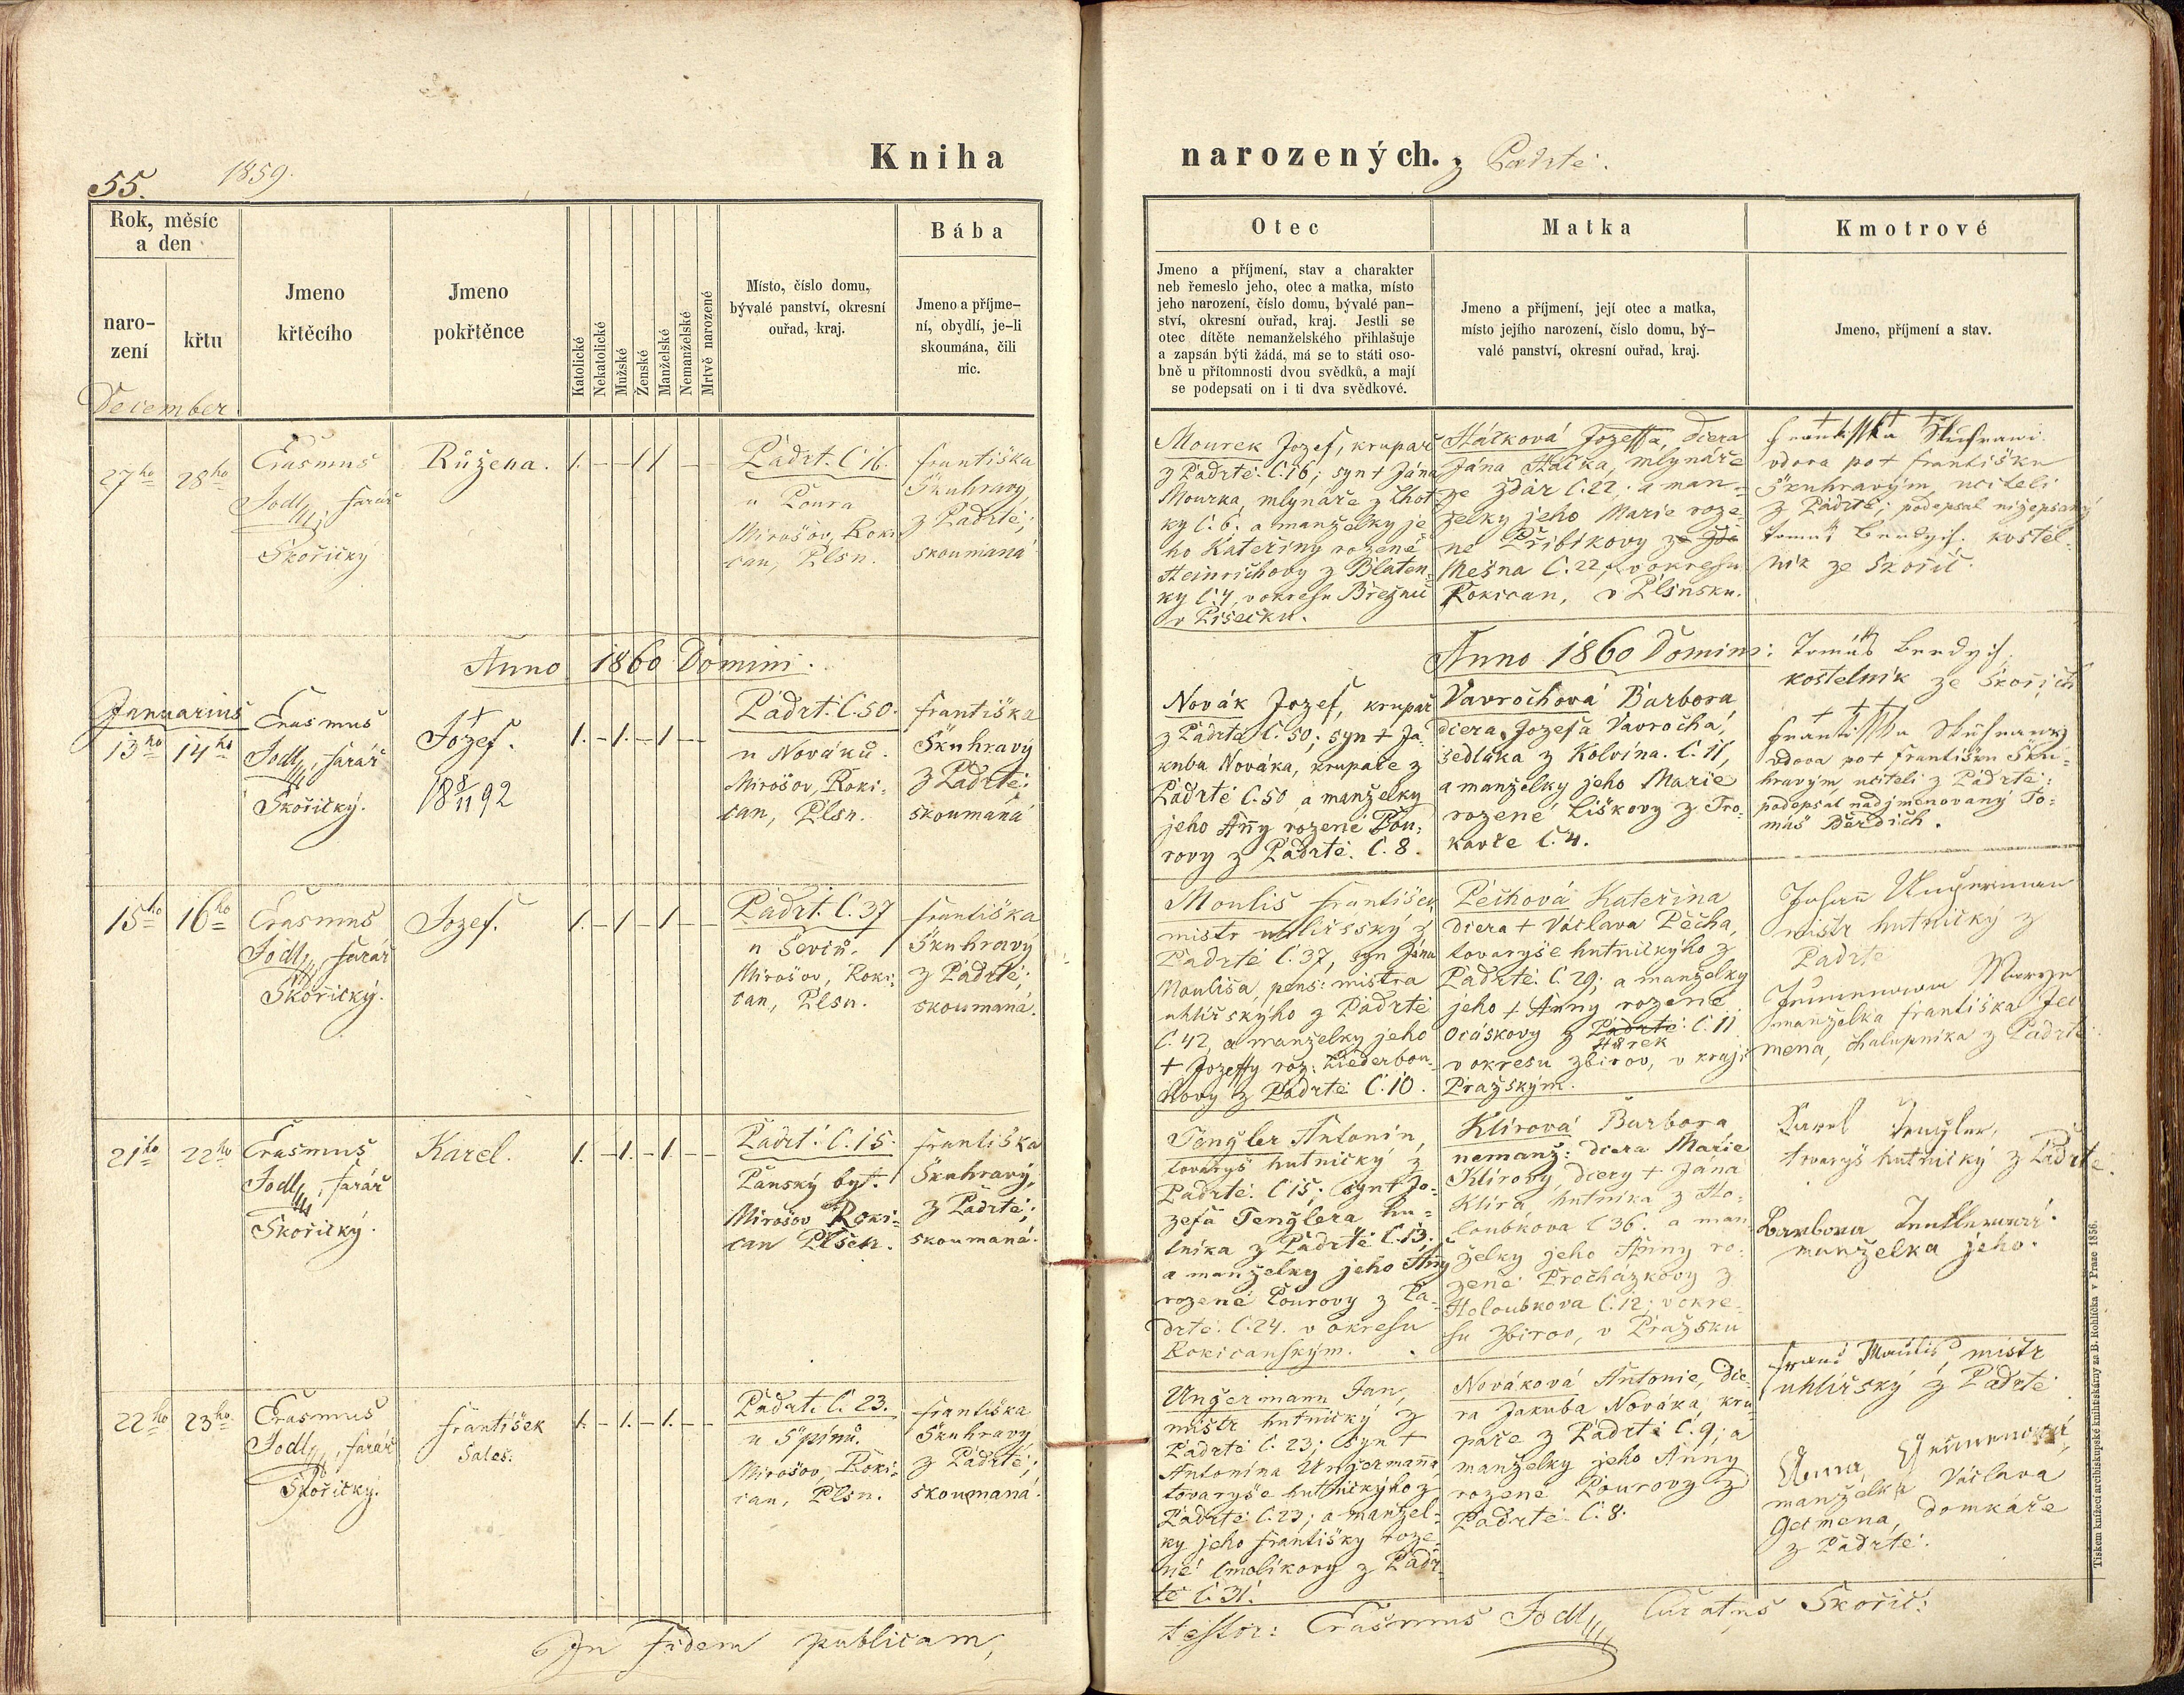 Kniha
narozených. z Padrtě.
55.
1859.
Rok, měsíc
a den
naro-
zení
křtu
Jmeno
křtěcího
Jmeno
pokřtěnce
Katolické
Nekatolické
Mužské
Ženské
Manželské
Nemanželské
Mrtvě narozené
Místo, číslo domu,
bývalé panství, okresní
ouřad, kraj.
Bába
Jmeno a příjme-
ní, obydlí, je-li
skoumána, čili
nic.
Otec
Jmeno a příjmení, stav a charakter
neb řemeslo jeho, otec a matka, místo
jeho narození, číslo domu, bývalé pan-
ství, okresní ouřad, kraj. Jestli se
otec dítěte nemanželského přihlašuje
a zapsán býti žádá, má se to státi oso-
bně u přítomnosti dvou svědků, a mají
se podepsati on i ti dva svědkové.
Matka
Jmeno a příjmení, její otec a matka,
místo jejího narození, číslo domu, bý-
valé panství, okresní ouřad, kraj.
Kmotrové
Jmeno, příjmení a stav.
December
27ho
28ho
Erasmus
Jodl, farář
Skořický
Růžena.
1. – – 1 1 – –
Padrt. Č 16.
u Poura
Mirošov, Roki-
can, Plsn.
Františka
Škuhravy,
z Padrtě;
skoumaná
Mourek Jozef, krupař
z Padrtě Č. 16; syn + Jána
Mourka, mlynáře z Lhot
ky Č. 6. a manželky je
ho Kateřiny rozené
Heinrichovy z Blaten-
ky Č 4, v okresu Březnic
v Písecku.
Háčková Jozeffa, dcera
Jána Háčka, mlynáře
ze Ždár Č. 22. a man-
želky jeho Marie roze-
né Přibíkovy ze Žda
Mešna Č. 22, v okresu
Rokican, v Plsnsku.
+ + +
Františka Skuhrawi.
vdova po + Františku
Škuhravým, učiteli
z Padrtě; podepsal nížepsaný
Tomáš Berdych. kostel-
ník ze Skořic.
Anno 1860 Domini.
Anno 1860 Domini:
Januarius
13ho
14ho
Erasmus
Jodl, farář
Skořický.
+
Jozef.
18 8/11 92
1. – 1. – 1 – –
Padrt. Č. 50.
u Nováků.
Mirošov, Roki-
can, Plsn.
Františka
Škuhravý
z Padrtě;
skoumaná
Novák Jozef, krupař
z Padrtě Č. 50; syn + Ja-
kuba Nováka, krupaře z
Padrtě Č. 50 a manželky
jeho Anny rozené Pou-
rovy z Padrtě. Č. 8.
Vavrochová Barbora
dcera Jozefa Vavrocha,
sedláka z Kolvína. Č. 11,
a manželky jeho Marie
rozené Liškovy z Tro-
kavče Č. 4.
Tomáš Berdych,
kostelník ze Skořich
+ + +
Františka Skuhrawy
vdova po + Františku Škuh-
hravým učiteli z Padrtě:
podepsal nadjmenovaný To-
máš Berdich.
15ho
16ho
Erasmus
Jodl, farář
Skořický.
Jozef.
1. – 1 – 1 – –
Padrt. Č. 37
u Ševců.
Mirošov, Roki-
can, Plsn.
Františka
Škuhravý
z Padrtě;
skoumaná.
Moulis František
mistr uhlířský z
Padrtě Č. 37, syn Jána
Moulisa, pens: mistra
uhlířskýho z Padrtě
Č. 42, a manželky jeho
+ Jozeffy roz: Liederbou-
kovy z Padrtě Č. 10.
Pechová Kateřina
dcera + Václava Pecha,
tovaryše hutnickýho z
Padrtě. Č. 29; a manželky
jeho + Anny rozené
Ocáskovy z Padrtě. Č. 11
Hůrek
v okresu Zbirov, v kraji
Pražským.
Johann Ungerman
mistr hutnický z
Padrtě
Marya
manželka Františka Jer
mena, chalupníka z Padrtě.
21ho
22ho
Erasmus
Jodl, farář
Skořický.
Karel.
1. – 1. – 1. – –
Padrt. Č. 15.
Panský byt.
Mirošov Roki-
can Plsen.
Františka
Škuhravý,
z Padrtě;
skoumaná.
Tengler Antonín,
tovaryš hutnický z
Padrtě. Č 15; syn + Jo-
zefa Tenglera hu-
tníka z Padrtě Č. 13;
a manželky jeho Anny
rozené Pourovy z Pa-
drtě. Č. 24. v okresu
Rokicanským.
Klírová Barbora
nemanž: dcera Marie
Klírovy, dcery + Jána
Klíra hutníka z Ho-
loubkova Č 36. a man
želky jeho Anny ro-
zené Procházkovy z
Holoubkova Č. 12; v okre-
su Zbirov, v Pražsku
Karel Tengler,
tovaryš hutnický z Padrtě.
Barbora Tenklerová.
manželka jeho.
22ho
23ho
Erasmus
Jodl, farář
Skořický.
František
Sales.
1. – 1. – 1. – –
Padrt. Č. 23.
u Spinů.
Mirošov, Roki-
can, Plsn.
Františka
Škuhravy
z Padrtě;
skoumaná.
Ungermann Jan,
mistr hutnický z
Padrtě Č. 23; syn +
Antonína Ungermana,
tovaryše hutnickýho z
Padrtě Č. 23; a manžel-
ky jeho Františky roze-
né Smolíkovy z Padr-
tě Č 31.
Nováková Antonie, dce-
ra Jakuba Nováka, kru
paře z Padrtě Č. 9; a
manželky jeho Anny
rozené Pourovy z
Padrtě Č. 8.
Franc Maulis, mistr
uhlířský z Padrtě
Anna Germenová,
manželka Václava
Germena, domkáře
z Padrtě.
In fidem publicam,
testor: Erasmus Jodl, Curatus Skořic:
Tiskem knížecí arcibiskupské knihtiskárny za B. Rohlíčka v Praze 1856.